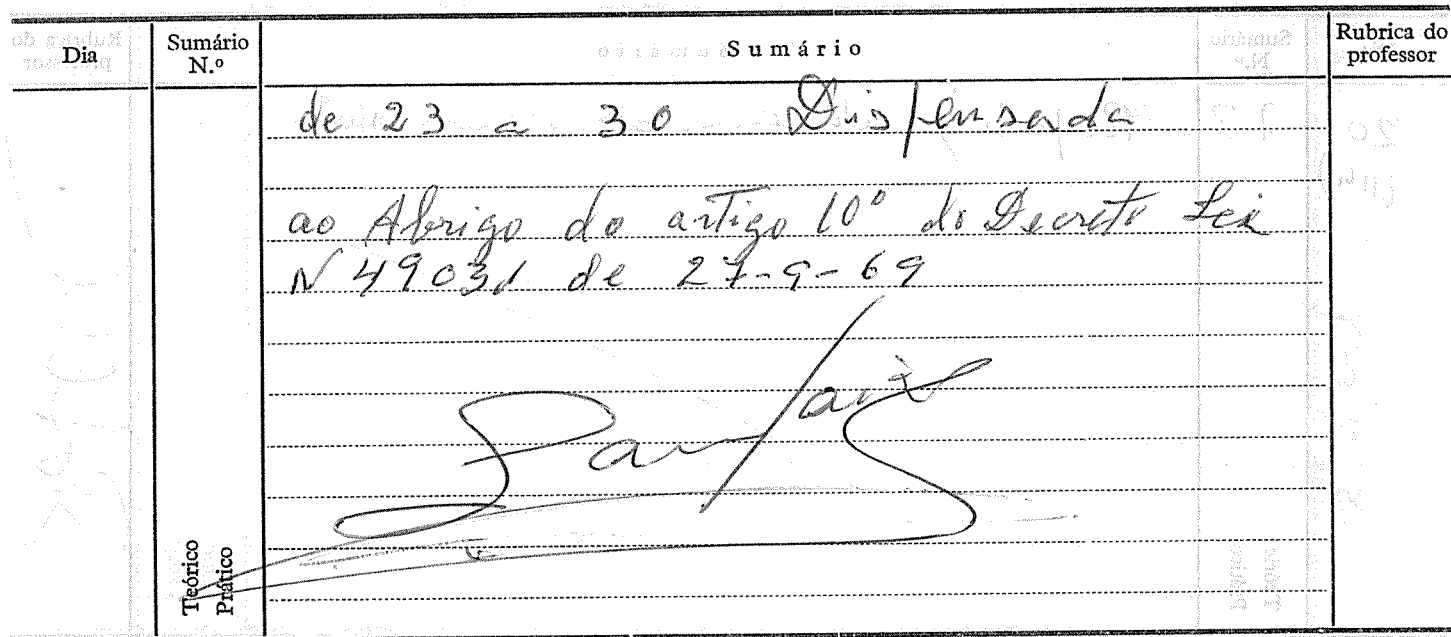 Dia
Sumário N.º
Sumário
Rubrica do professor
de 23 a 30 Dispensada
ao Abrigo do artigo 10º do Decreto Lei
N 49031 de 27-9-69
Teórico
Prático